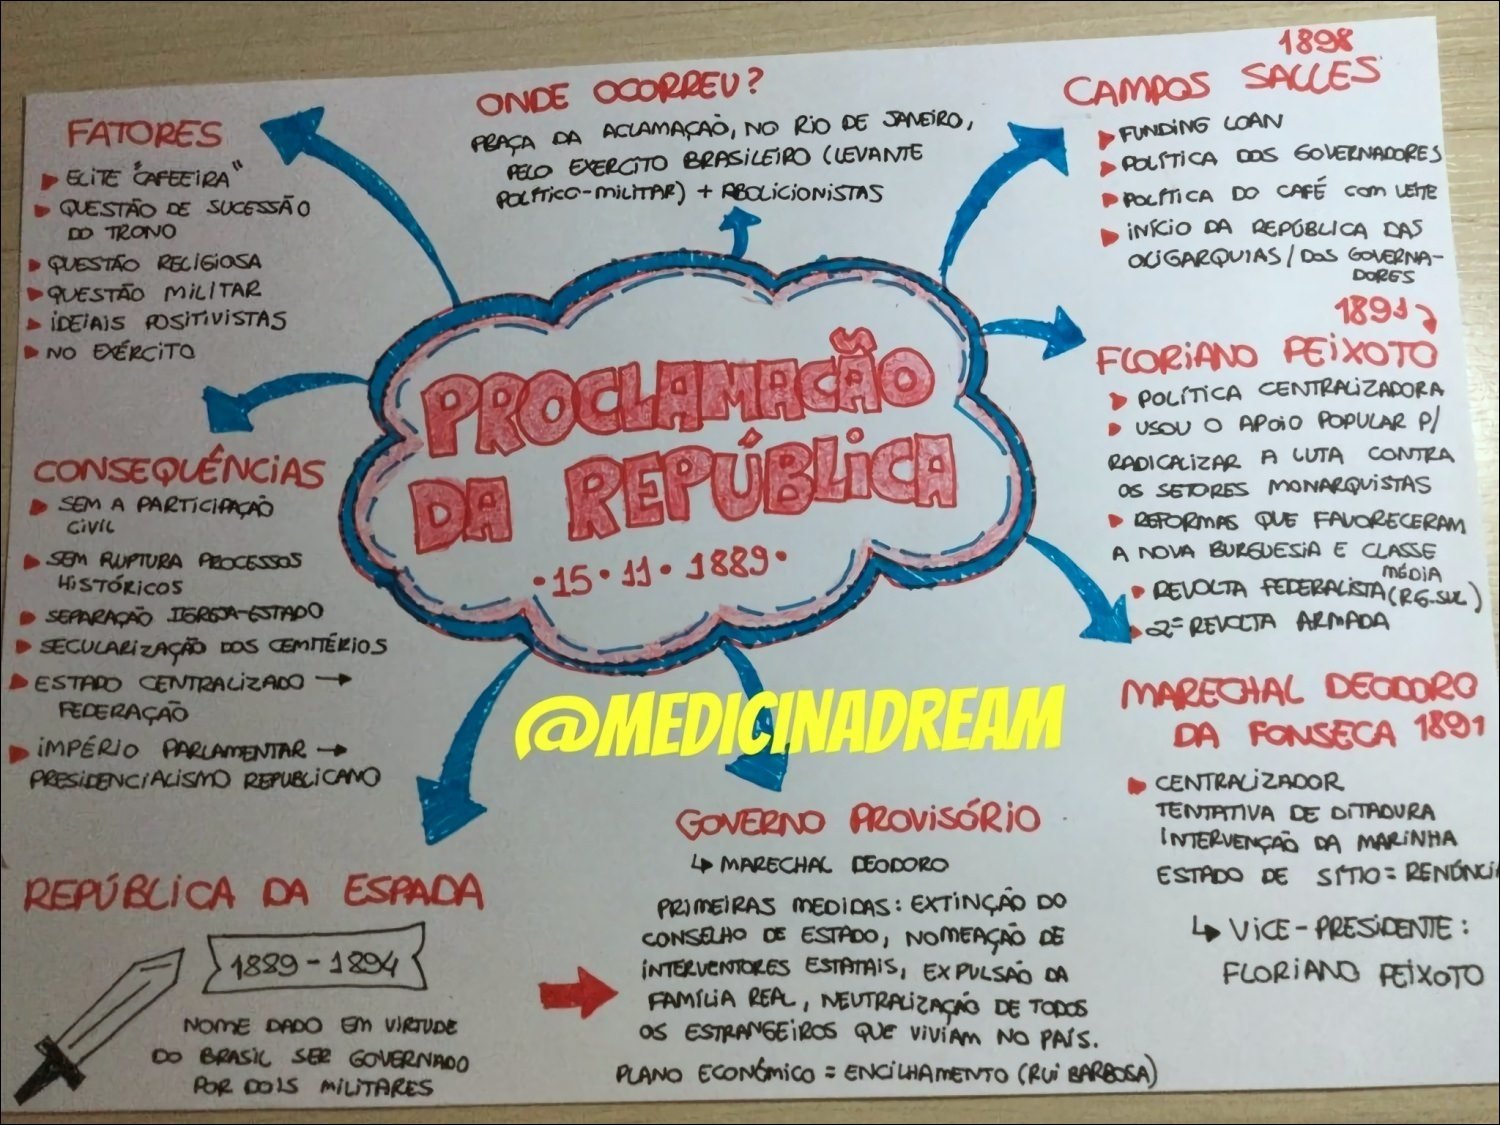 FATORES
ELITE "CAFEEIRA"
QUESTÃO DE SUCESSÃO
DO TRONO
QUESTÃO RELIGIOSA
QUESTÃO MILITAR
IDEIAIS POSITIVISTAS
NO EXÉRCITO
ONDE OCORREU?
PRAÇA DA ACLAMAÇÃO, NO RIO DE JANEIRO,
PELO EXERCITO BRASILEIRO (LEVANTE
POLÍTICO-MILITAR) + ABOLICIONISTAS
1898
CAMPOS SALLES
FUNDING LOAN
POLÍTICA DOS GOVERNADORES
POLÍTICA DO CAFÉ COM LEITE
INÍCIO DA REPÚBLICA DAS
OLIGARQUIAS / DOS GOVERNA-
DORES
PROCLAMAÇÃO
DA REPÚBLICA
•15•11•1889•
1891
FLORIANO PEIXOTO
POLÍTICA CENTRALIZADORA
USOU O APOIO POPULAR P/
RADICALIZAR A LUTA CONTRA
OS SETORES MONARQUISTAS
REFORMAS QUE FAVORECERAM
A NOVA BURGUESIA E CLASSE
MÉDIA
REVOLTA FEDERALISTA (RG.SUL)
2ª REVOLTA ARMADA
CONSEQUÊNCIAS
SEM A PARTICIPAÇÃO
CIVIL
SEM RUPTURA PROCESSOS
HISTÓRICOS
SEPARAÇÃO IGREJA-ESTADO
SECULARIZAÇÃO DOS CEMITÉRIOS
ESTADO CENTRALIZADO →
FEDERAÇÃO
IMPÉRIO PARLAMENTAR →
PRESIDENCIALISMO REPUBLICANO
@MEDICINADREAM
MARECHAL DEODORO
DA FONSECA 1891
CENTRALIZADOR
TENTATIVA DE DITADURA
INTERVENÇÃO DA MARINHA
ESTADO DE SÍTIO = RENÚNCIA
↳ VICE-PRESIDENTE:
FLORIANO PEIXOTO
GOVERNO PROVISÓRIO
↳ MARECHAL DEODORO
PRIMEIRAS MEDIDAS: EXTINÇÃO DO
CONSELHO DE ESTADO, NOMEAÇÃO DE
INTERVENTORES ESTATAIS, EXPULSÃO DA
FAMÍLIA REAL, NEUTRALIZAÇÃO DE TODOS
OS ESTRANGEIROS QUE VIVIAM NO PAÍS.
PLANO ECONÔMICO = ENCILHAMENTO (RUI BARBOSA)
REPÚBLICA DA ESPADA
1889 - 1894
NOME DADO EM VIRTUDE
DO BRASIL SER GOVERNADO
POR DOIS MILITARES